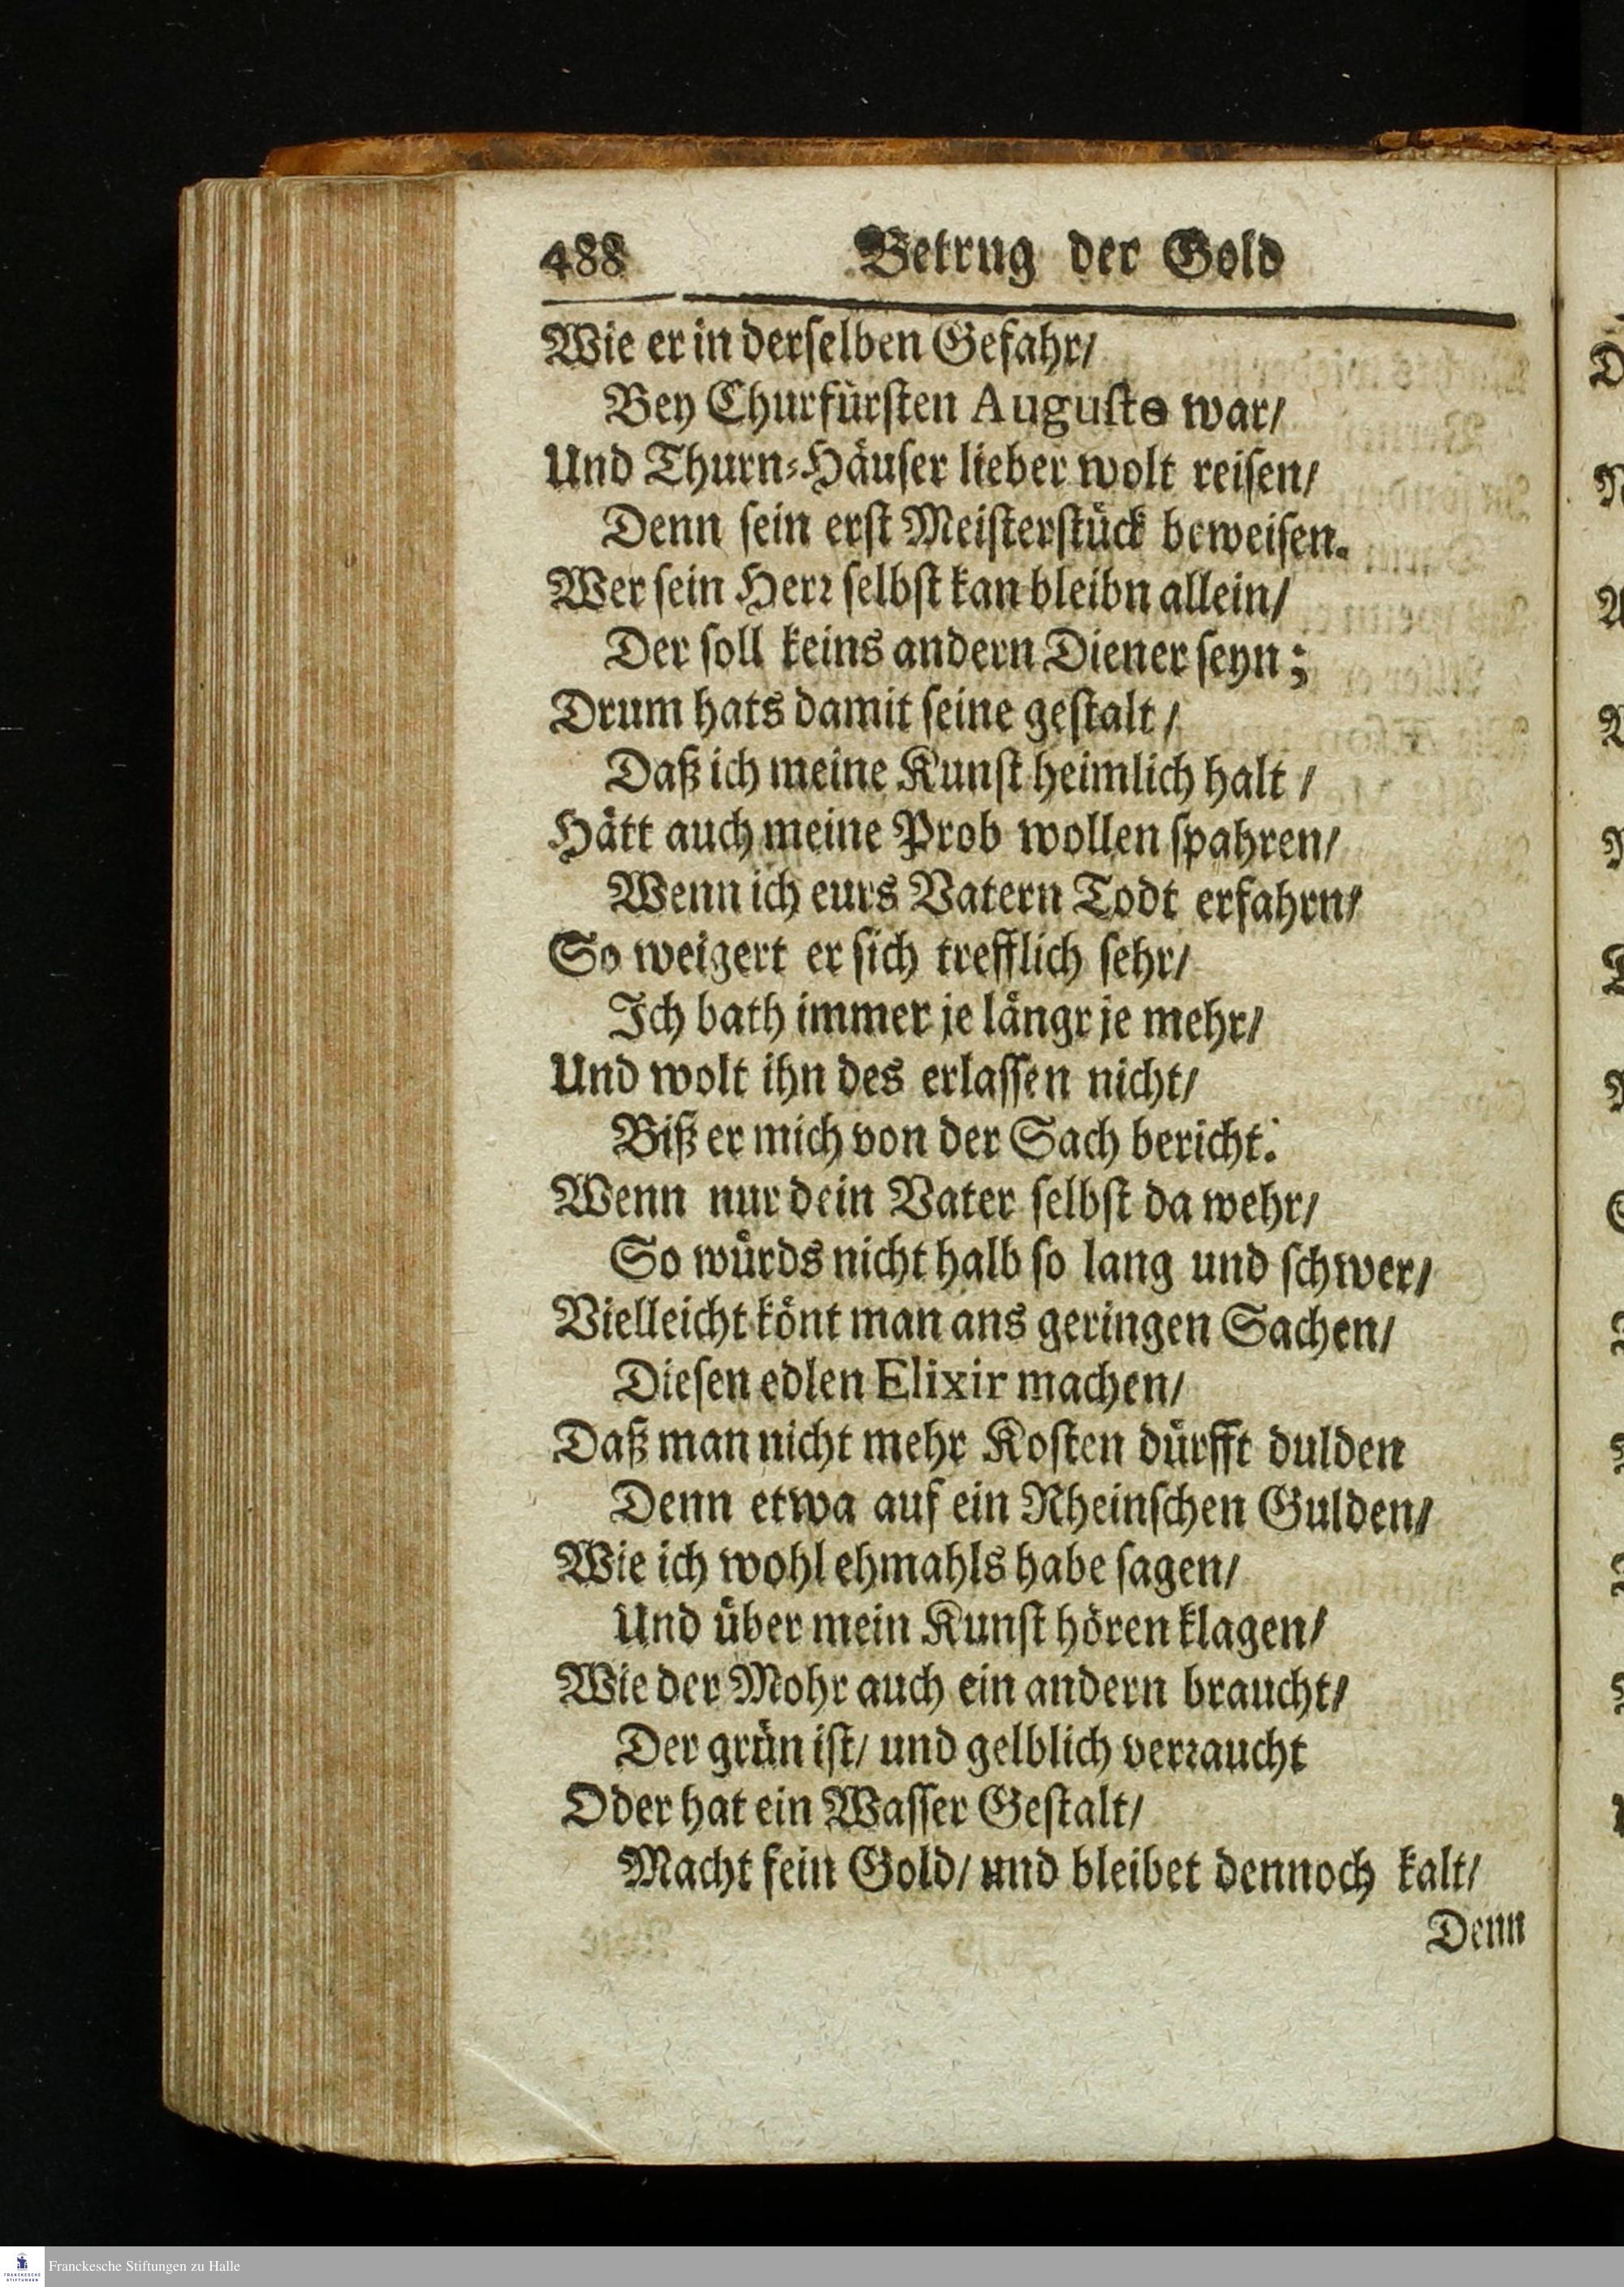 488 Betrug der Gold
Wie er in derſelben Gefahr/
Bey Churfürſten Auguſto war/
Und Thurn⸗Häuſer lieber wolt reiſen/
Denn ſein erſt Meiſterſtück beweiſen.
Wer ſein Herꝛ ſelbſt kan bleibn allein/
Der ſoll keins andern Diener ſeyn;
Drum hats damit ſeine geſtalt/
Daß ich meine Kunſt heimlich halt/
Hätt auch meine Prob wollen ſpahren/
Wenn ich eurs Vatern Todt erfahrn/
So weigert er ſich trefflich ſehr/
Ich bath immer je längr je mehr/
Und wolt ihn des erlaſſen nicht/
Biß er mich von der Sach bericht.
Wenn nur dein Vater ſelbſt da wehr/
So würds nicht halb ſo lang und ſchwer/
Vielleicht könt man ans geringen Sachen/
Dieſen edlen Elixir machen/
Daß man nicht mehr Koſten dürfft dulden
Denn etwa auf ein Rheinſchen Gulden/
Wie ich wohl ehmahls habe ſagen/
Und über mein Kunſt hören klagen/
Wie der Mohr auch ein andern braucht/
Der grün iſt/ und gelblich verꝛaucht
Oder hat ein Waſſer Geſtalt/
Macht fein Gold/ und bleibet dennoch kalt/
Denn
Franckesche Stiftungen zu Halle